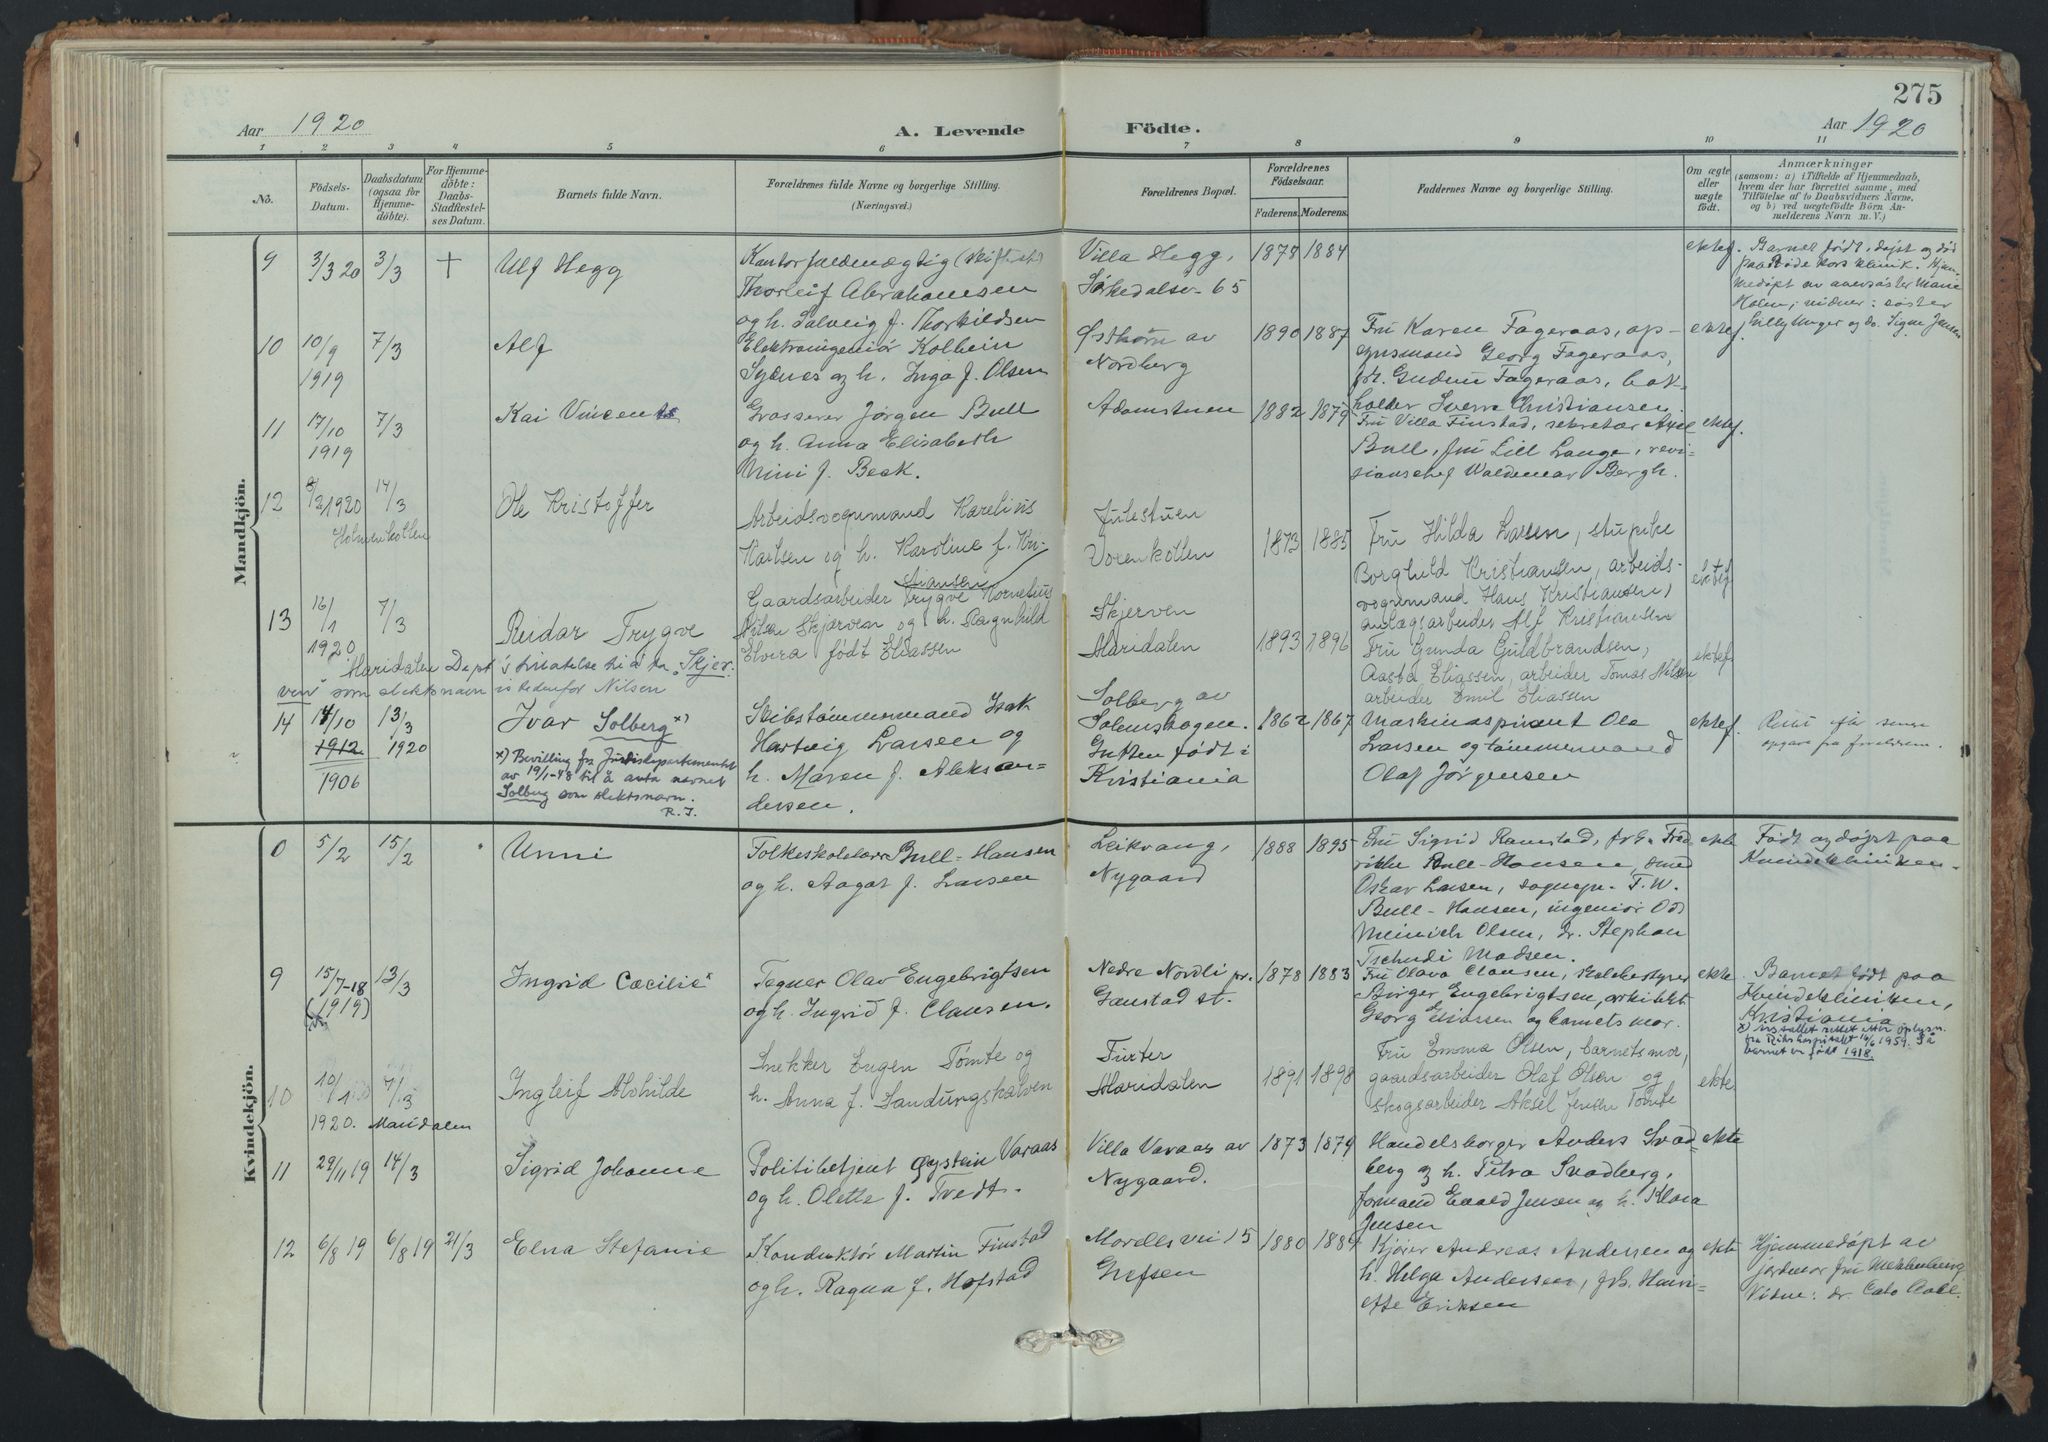 275
Aar 1920
A. Levende Födte.
Aar 1920
1 2 3 4 5 6 7 8 9 10 11
No.
Födsels-
Datum.
Daabsdatum
(ogsaa for
Hjemme-
döbte).
For Hjemme-
döbte:
Daabs-
Stadfæstel-
ses Datum.
Barnets fulde Navn.
Forældrenes fulde Navne og borgerlige Stilling.
(Næringsvei.)
Forældrenes Bopæl.
Forældrenes
Födselsaar.
Faderens. Moderens.
Faddernes Navne og borgerlige Stilling.
Om ægte
eller
uægte
födt.
Anmærkninger
(saasom: a) i Tilfælde af Hjemmedaab,
hvem der har forrettet samme, med
Tilföielse af to Daabsvidners Navne,
og b) ved uægtefödte Börn An-
melderens Navn m. V.)
Mandkjön.
9
3/3 20
3/3
+
Ulf Hegg
Kontorfuldmægtig
Thorleif Abrahamsen
og h. Solveig f. Thorkildsen
Villa Hegg,
Sørkedalsv. 65
1878 1884
ektef.
Barnet født, døpt og død
paa Røde Kors klinik. Hjem-
medøpt av oversøster Marie
Holm; vidner: søster
Lilly Unger og do. Signe Jensen
10
10/9
1919
7/3
Alf
Elektroingeniør Kolbein
Sydnes og h. Inga f. Olsen
Østhorn av
Nordberg
1890 1887
Fru Karen Fageraas, op-
synsmand Georg Fageraas,
frk. Gudrun Fageraas, bok-
holder Sverre Christiansen.
ektef.
11
17/10
1919
7/3
Kai Vincents
Grosserer Jørgen Bull
og h. Anna Elisabeth
Mimi f. Beck.
Adamstuen
1882 1879
Fru Villa Finstad, sekretær Axel
Bull, fru Lill Lange, revi-
sionschef Waldemar Bergh.
ektef.
12
8/2 1920
14/3
Holmenkollen
Ole Kristoffer
Arbeidsvognmand Karelius
Karlsen og h. Karoline f. Kri-
stiansen
Julestuen
Voxenkollen
1873 1885
Fru Hilda Larsen, stupike
Borghild Kristiansen, arbeids-
vognmand Hans Kristiansen,
anlægsarbeider Alf Kristiansen
ektef
13
16/1
1920
7/3
Reidar Trygve
Gaardsarbeider Trygve Kornelius
Nilsen Skjærven og h. Ragnhild
Elvira født Eliassen
Skjerven
Maridalen
1893 1896
Fru Gunda Guldbrandsen,
Aasta Eliassen, arbeider Tomas Nilsen
arbeider Emil Eliassen
ektef.
Maridalen Dept's tillatelse til å ta "Skjer-
ven" som slektsnavn istedenfor Nilsen
14
14/10
1912
1906
13/3
1920
Ivar Solberg x)
x) Bevilling fra Justisdepartementet
av 19/1-48 til å anta navnet
Solberg som slektsnavn.
R. J.
Skibstømmermand Isak
Hartvig Larsen og
h. Maren f. Aleksan-
dersen.
Solberg av
Solemskogen.
Gutten født i
Kristiania
1862 1867
Maskinaspirant Ole
Larsen og tømmermand
Olaf Jørgensen
ektef.
opgave fra forældrene.
Kvindekjön.
0
5/2
15/2
Unni
Folkeskolelærer Bull-Hansen
og h. Aagot f. Larsen
Leikvang,
Nygaard
1888 1895
Fru Sigrid Ramstad, frk. Fred-
rikke Bull-Hansen, smed
Oskar Larsen, sognepr. F. W.
Bull-Hansen, ingeniør Odd
Meinich Olsen, dr. Stephan
Tschudi Madsen.
ekte
Født og døpt paa
Kvindekliniken.
9
15/7-18
(1919)
13/3
Ingrid Cæcilie x
Tegner Olav Engebrigtsen
og h. Ingrid f. Clausen.
Nedre Nordli pr.
Gaustad st.
1878 1883
Fru Olava Clausen, skolebestyrer
Birger Engebrigtsen, arkitekt
Georg Eliassen og barnets mor.
ekte
Barnet født paa
Kvindekliniken,
Kristiania
x) Årstallet rettet etter oplysn.
fra Rikshospitalet 14/6 1959. Så
barnet er født 1918.
10
10/1
1920.
7/3
Maridalen
Ingleif Alvhilde
Snekker Eugen Tømte og
h. Anna f. Sandungskalven
Turter
Maridalen
1891 1898
Fru Emma Olsen, barnets mor,
gaardsarbeider Olaf Olsen og
skogsarbeider Aksel Tømte
ekte
11
29/11 19
14/3
Sigrid Johanne
Politibetjent Øystein Varaas
og h. Olette f. Tvedt.
Villa Varaas av
Nygaard.
1873 1879
Handelsborger Anders Svad-
berg og h. Petra Svadberg,
formand Evald Jensen og h. Klara
Jensen
ekte
12
6/8 19
6/8 19
21/3
Elna Stefanie
Konduktør Martin Finstad
og h. Ragna f. Hofstad
Morells vei 15
Grefsen
1880 1884
Kjører Andreas Andersen og
h. Helga Andersen, frk. Hanri-
ette Eriksen
ekte
Hjemmedøpt av
jordmor fru Mekkelborg
Vidne: dr. Cato Aall.